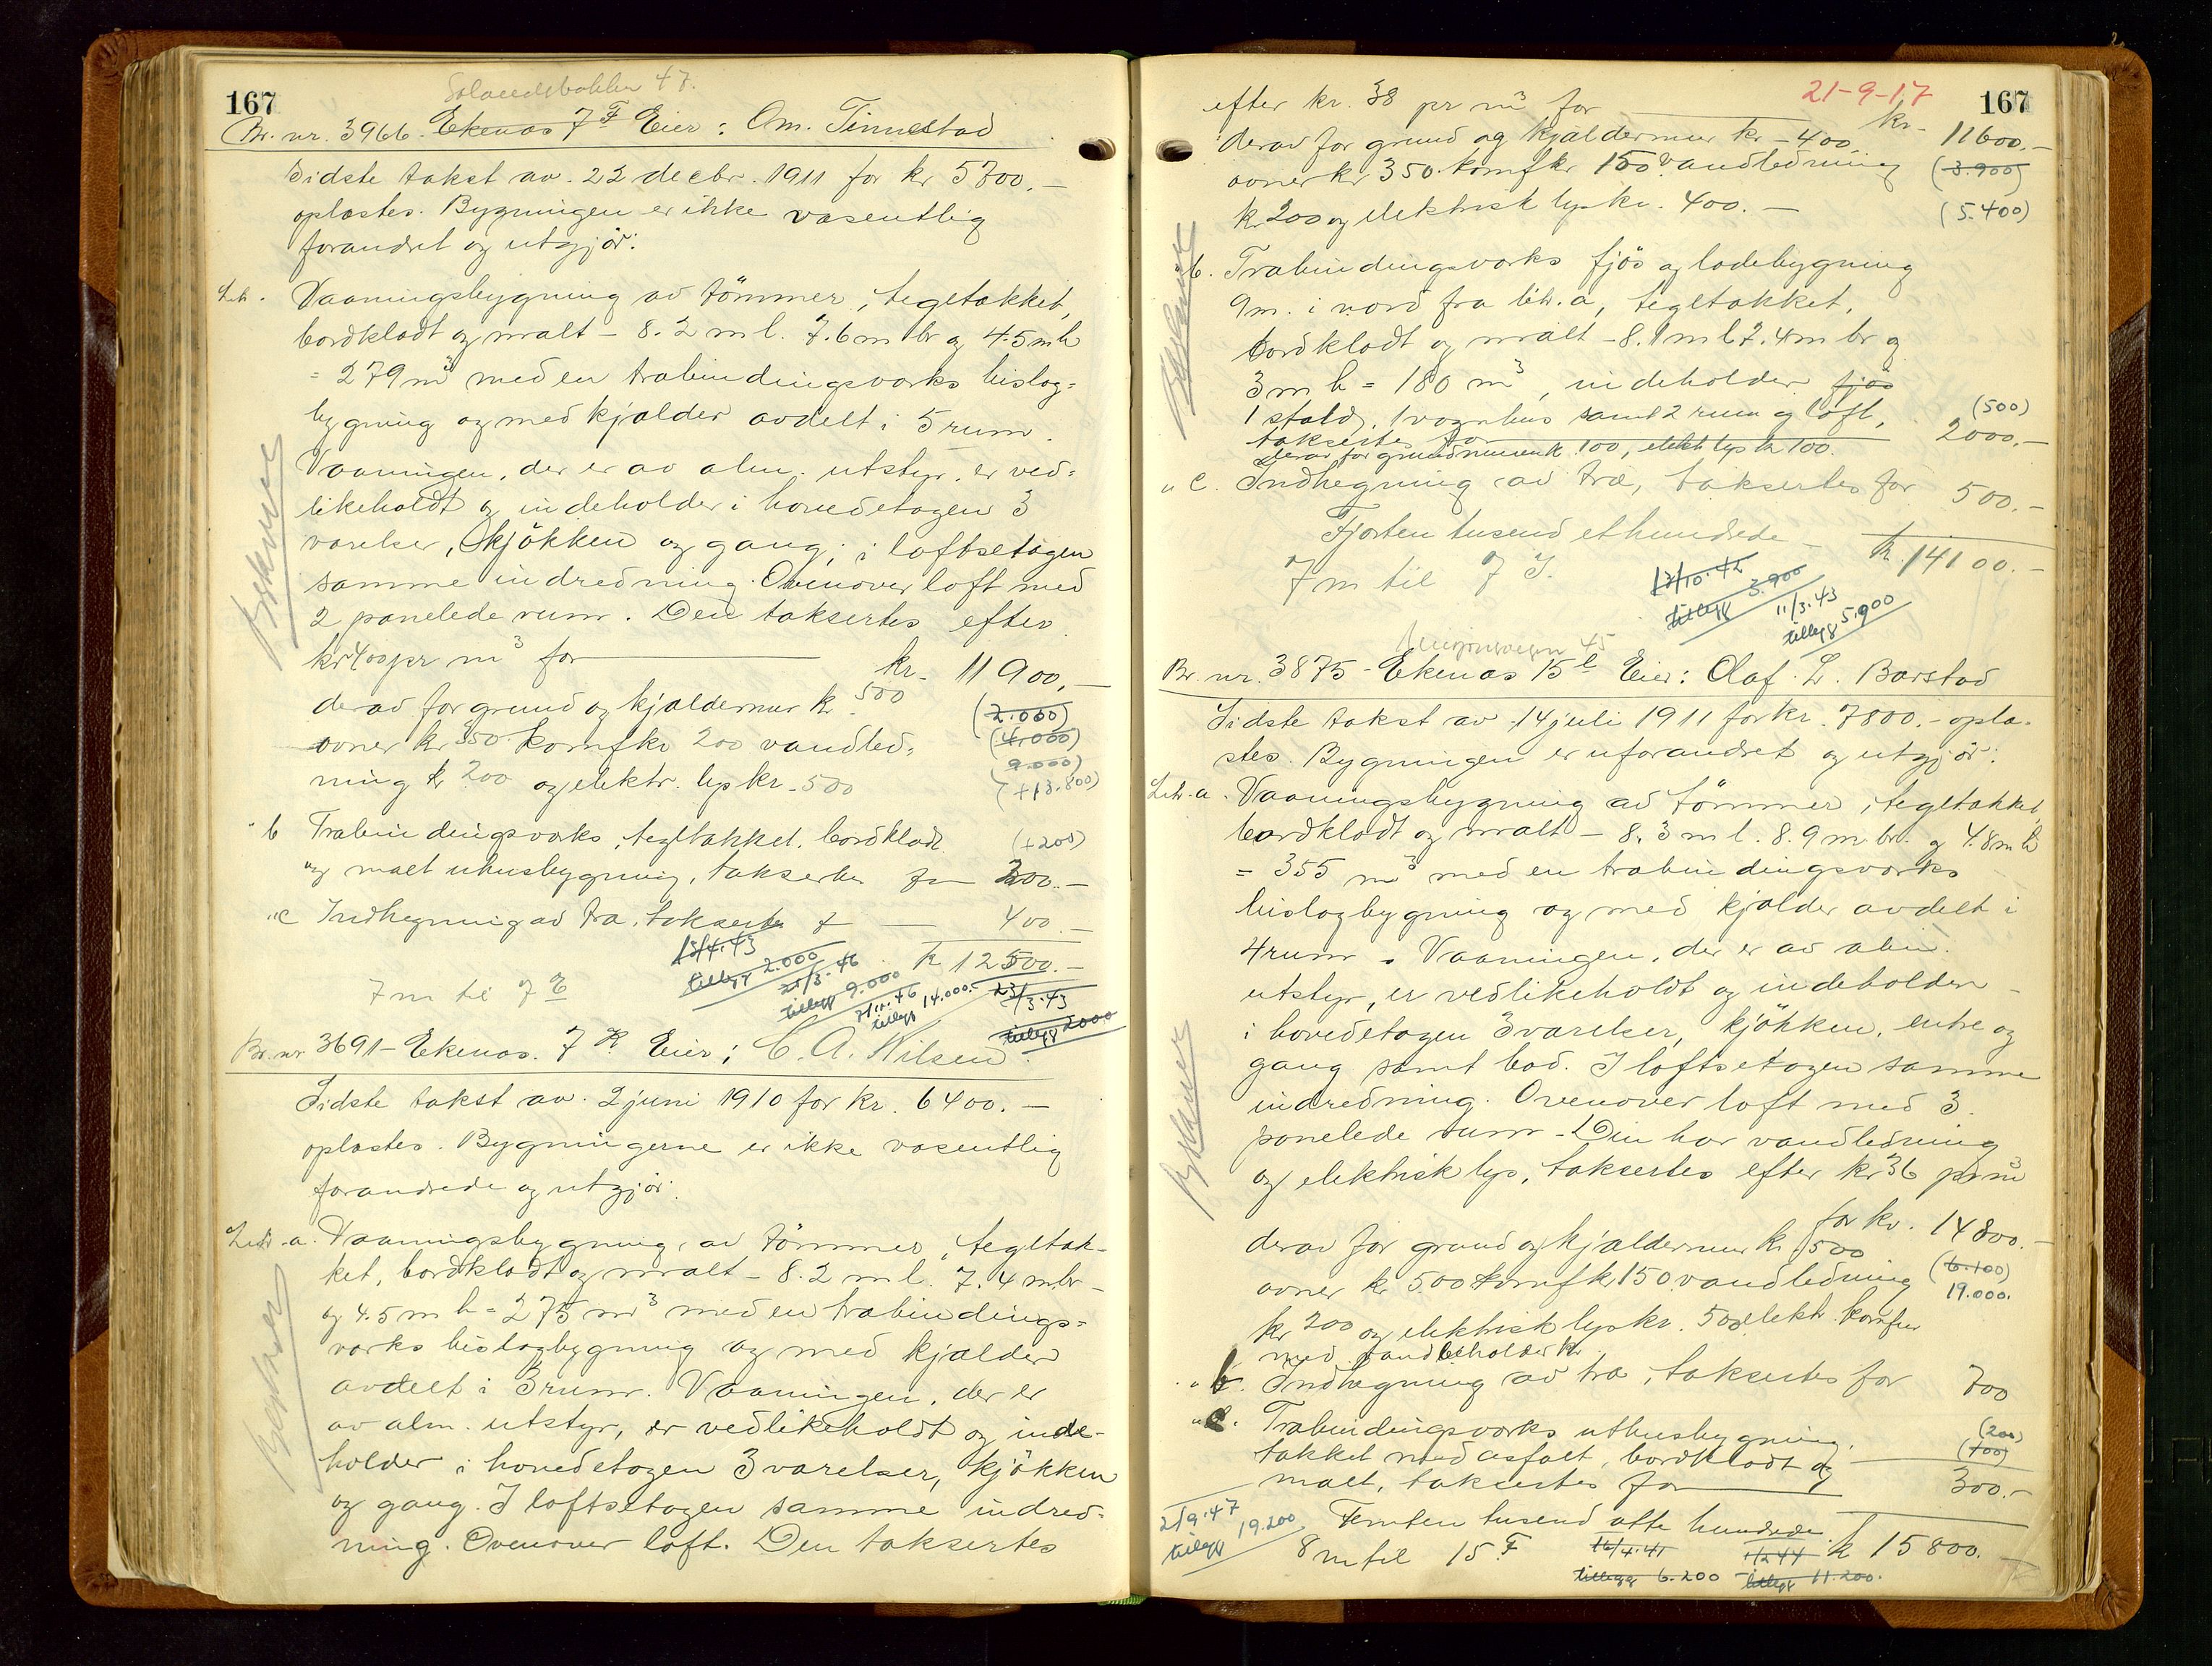 167
Br. nr. 3966. Ekenæs 7 F Eier: Om. Tinnestad
Sidste takst av. 22 decbr. 1911 for kr 5700.–
oplæstes. Bygningen er ikke væsentlig
forandret og utgjør:
Litr. Vaaningsbygning av tømmer, tegltækket,
bordklædt og malt – 8.2 m l. 7.6 m br og 4.5 m h
= 279 m³ med en træbindingsverks bislag=
bygning og med kjælder avdelt i 5 rum.
Vaaningen, der er av alm. utstyr, er ved=
likeholdt og indeholder i hovedetagen 3
værelser, kjøkken og gang; i loftsetagen
samme indredning. Ovenover loft med
2 panelede rum. Den takseres efter
kr 400 pr m³ for kr. 11900.–
derav for grund og kjældermur kr 500
(2.000)
ovner kr 350 komf kr 200 vandled=
(4.000)
(9.000)
ning kr 200 og elektr. lys kr. 500
(+13.800)
" b Træbindingsverks, tegltækket, bordklædt (+200)
og malt uthusbygning, takseres for 200.–
" c Indhegning av træ, takseres f 400.–
kr 12500.–
13/4.43
tillegg 2.000
25/3.46
tillegg 9.000
tillegg 14.000.-
23/3.43
tillegg 2000
7 m til 7 E
Br. nr 3691 – Ekenæs. 7 K Eier: C. A. Nilsen.
Sidste takst av. 2 juni 1910 for kr. 6400.–
oplæstes. Bygningerne er ikke væsentlig
forandrede og utgjør:
Litr. a. Vaaningsbygning, av tømmer, tegltæk-
ket, bordklædt og malt – 8.2 m l. 7.4 m br –
og 4.5 m h = 275 m³ med en træbindings=
verks bislagbygning og med kjælder
avdelt i 3 rum. Vaaningen, der er
av alm. utstyr, er vedlikeholdt og inde-
holder i hovedetagen 3 værelser, kjøkken
og gang. I loftsetagen samme indred-
ning. Ovenover loft. Den takseres
21-9-17
167
efter kr. 38 pr m³ for kr. 11600.–
derav for grund og kjældermur kr – 400
(3.900)
ovner kr 350. komf kr 150 vandledning
(5.400)
kr 200 og elektrisk lys kr. 400.–
" b. Træbindingsverks fjøs og ladebygning
9 m. i nord fra litr. a, tegltækket,
bordklædt og malt – 8.1 m l 7.4 m br og
3 m h = 180 m³, indeholder fjøs
1 stald, 1 vognhus samt 2 rum og loft,
(500)
takseres for 2000.–
derav for grundmuren kr. 100, elektr lys kr 100.
" c. Indhegning av træ, takseres for 500.–
Fjorten tusend et hundrede – kr. 14100.–
7 m til 7 I.
13/10.42
tillegg 3.900
11/3.43
tillegg 5.900
Br. nr. 3875 – Ekenæs 15 l Eier: Olaf. L. Barstad
Sidste takst av 14 juli 1911 for kr. 7800.– oplæ-
stes. Bygningen er uforandret og utgjør:
Litr. a. Vaaningsbygning av tømmer, tegltækket,
bordklædt og malt – 8.3 m l. 8.9 m br. og 4.8 m h
= 355 m³ med en træbindingsverks
bislagbygning og med kjælder avdelt i
4 rum. Vaaningen, der er av alm.
utstyr, er vedlikeholdt og indeholder –
i hovedetagen 3 værelser, kjøkken, entre og
gang samt bod. I loftsetagen samme
indredning. Ovenover loft med 3.
panelede rum – Den har vandledning
og elektrisk lys, takseres efter kr 36 pr m³
for kr. 14800.–
derav for grund og kjældermur kr 1500
(6.100)
ovner kr 500 komf kr 150 vandledning
19.000.
kr 200 og elektrisk lys kr. 500 elektr. komfur
med vandbeholder kr.
" b. Indhegning av træ, takseres for 700
" c. Træbindingsverks uthusbygning,
(200)
takket med asfalt, bordklædt og
(100)
malt, takseres for 300.–
Femten tusend otte hundrede kr 15800.–
8 m til 15 F
2/9.47
tillegg 19.200
16/4.41
tillegg 6.200
1/2 44
tillegg 11.200.